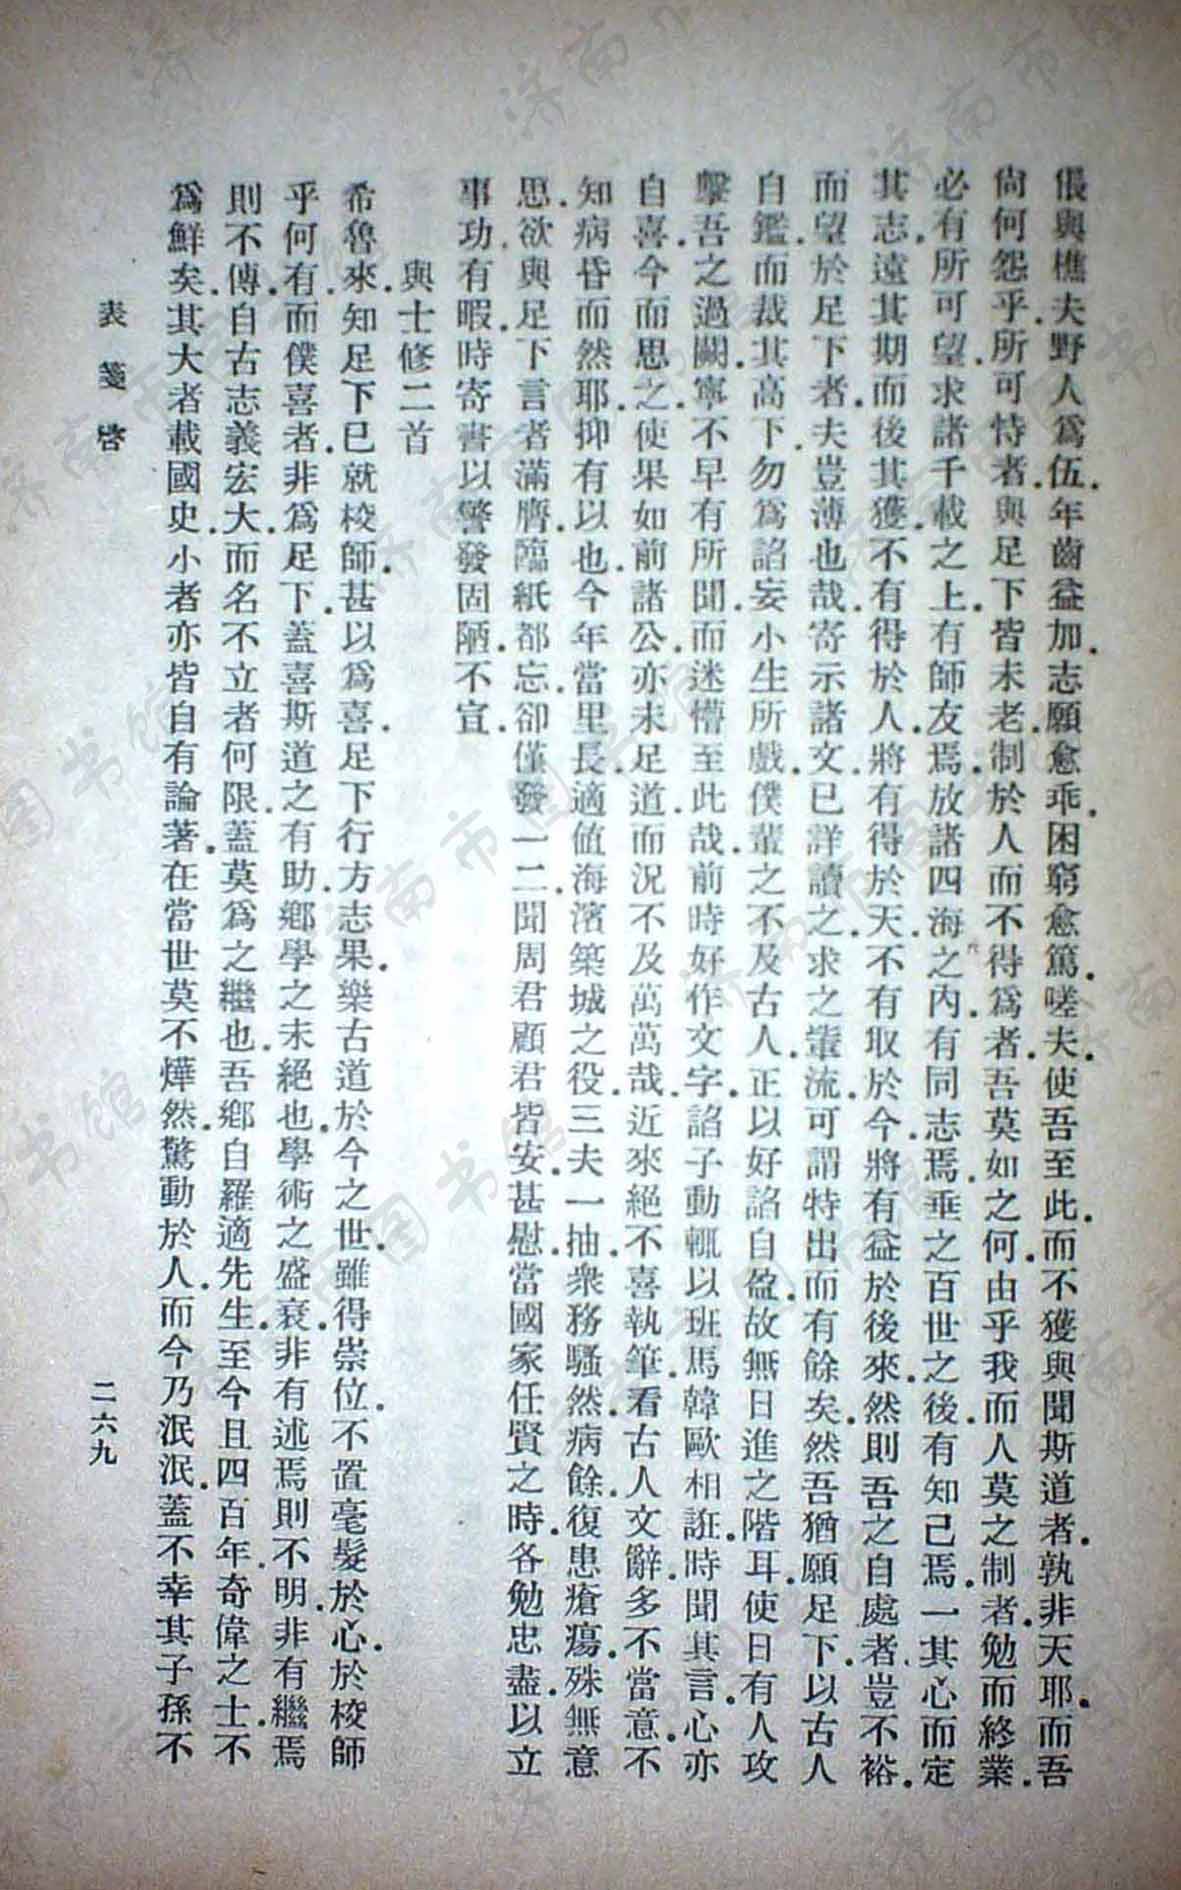 倀與樵夫野人爲伍.年齒益加.志願愈乖.困窮愈篤.嗟夫.使吾至此.而不獲與聞斯道者.孰非天耶.而吾
尙何怨乎.所可恃者.與足下皆未老.制於人而不得爲者.吾莫如之何.由乎我而人莫之制者.勉而終業.
必有所可望.求諸千載之上.有師友焉.放諸四海之內.有同志焉.垂之百世之後.有知己焉.一其心而定
其志.遠其期而後其獲.不有得於人.將有得於天.不有取於今.將有益於後來.然則吾之自處者.豈不裕.
而望於足下者.夫豈薄也哉.寄示諸文.已詳讀之.求之輩流.可謂特出而有餘矣.然吾猶願足下.以古人
自鑑.而裁其高下.勿爲諂妄小生所戲.僕輩之不及古人.正以好諂自盈.故無日進之階耳.使日有人攻
擊吾之過闕.寧不早有所聞.而迷懵至此哉.前時好作文字.諂子動輒以班馬韓歐相誑.時聞其言.心亦
自喜.今而思之.使果如前諸公.亦未足道.而況不及萬萬哉.近來絕不喜執筆.看古人文辭.多不當意.不
知病昏而然耶.抑有以也.今年當里長.適值海濱築城之役.三夫一抽.衆務騷然.病餘.復患瘡瘍.殊無意
思.欲與足下言者滿膺.臨紙都忘.卻僅發一二.聞周君顧君皆安.甚慰.當國家任賢之時.各勉忠盡.以立
事功.有暇.時寄書以警發固陋.不宣.
與士修二首
希魯來.知足下已就棱師.甚以爲喜.足下行方志果.樂古道於今之世.雖得崇位.不置毫髮於心.於棱師
乎何有.而僕喜者.非爲足下.蓋喜斯道之有助.鄕學之未絕也.學術之盛衰.非有述焉則不明.非有繼焉
則不傳.自古志義宏大.而名不立者何限.蓋莫爲之繼也.吾鄕自羅適先生.至今且四百年.奇偉之士.不
爲鮮矣.其大者載國史.小者亦皆自有論著.在當世莫不燁然.驚動於人.而今乃泯泯.蓋不幸其子孫不
表箋啓
二六九